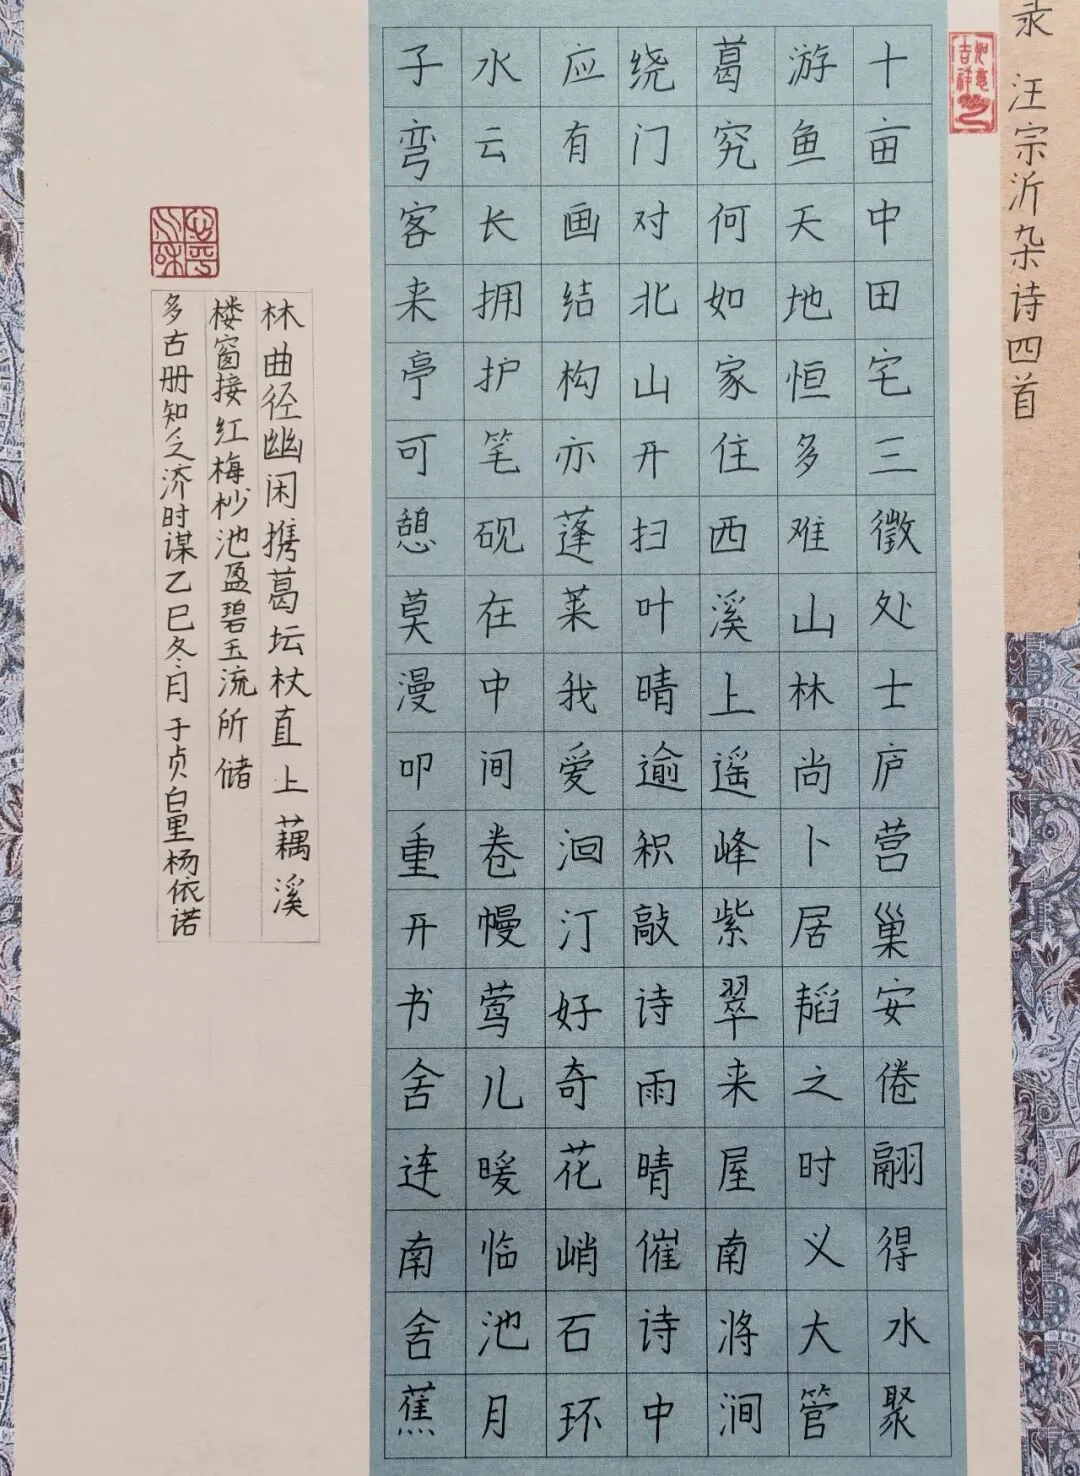 录 汪宗沂杂诗四首
如意吉祥
十亩中田宅三徵处士庐营巢安倦翮得水聚
游鱼天地恒多难山林尚卜居韬之时义大管
葛究何如家住西溪上遥峰紫翠来屋南将涧
绕门对北山开扫叶晴逾积敲诗雨晴催诗中
应有画结构亦蓬莱我爱洄汀好奇花峭石环
水云长拥护笔砚在中间卷幔莺儿暖临池月
子弯客来亭可憩莫漫叩重开书舍连南舍蕉
林曲径幽闲携葛坛杖直上藕溪
楼窗接红梅杪池盈碧玉流所储
多古册知乏济时谋乙巳冬月于贞白里杨依诺